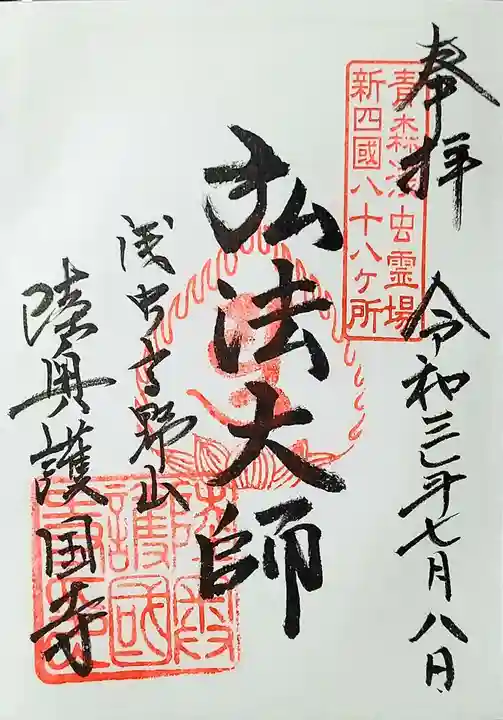 奉拝
令和三年七月八日
青森浅虫霊場
新四國八十八ヶ所
弘法大師
浅虫高野山
陸奥護国寺
陸奥
護國
寺印